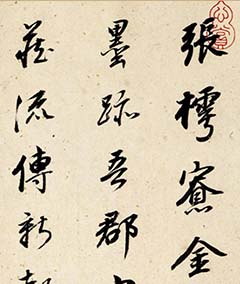 張樗寮金
墨跡吾郡
藏流傳新